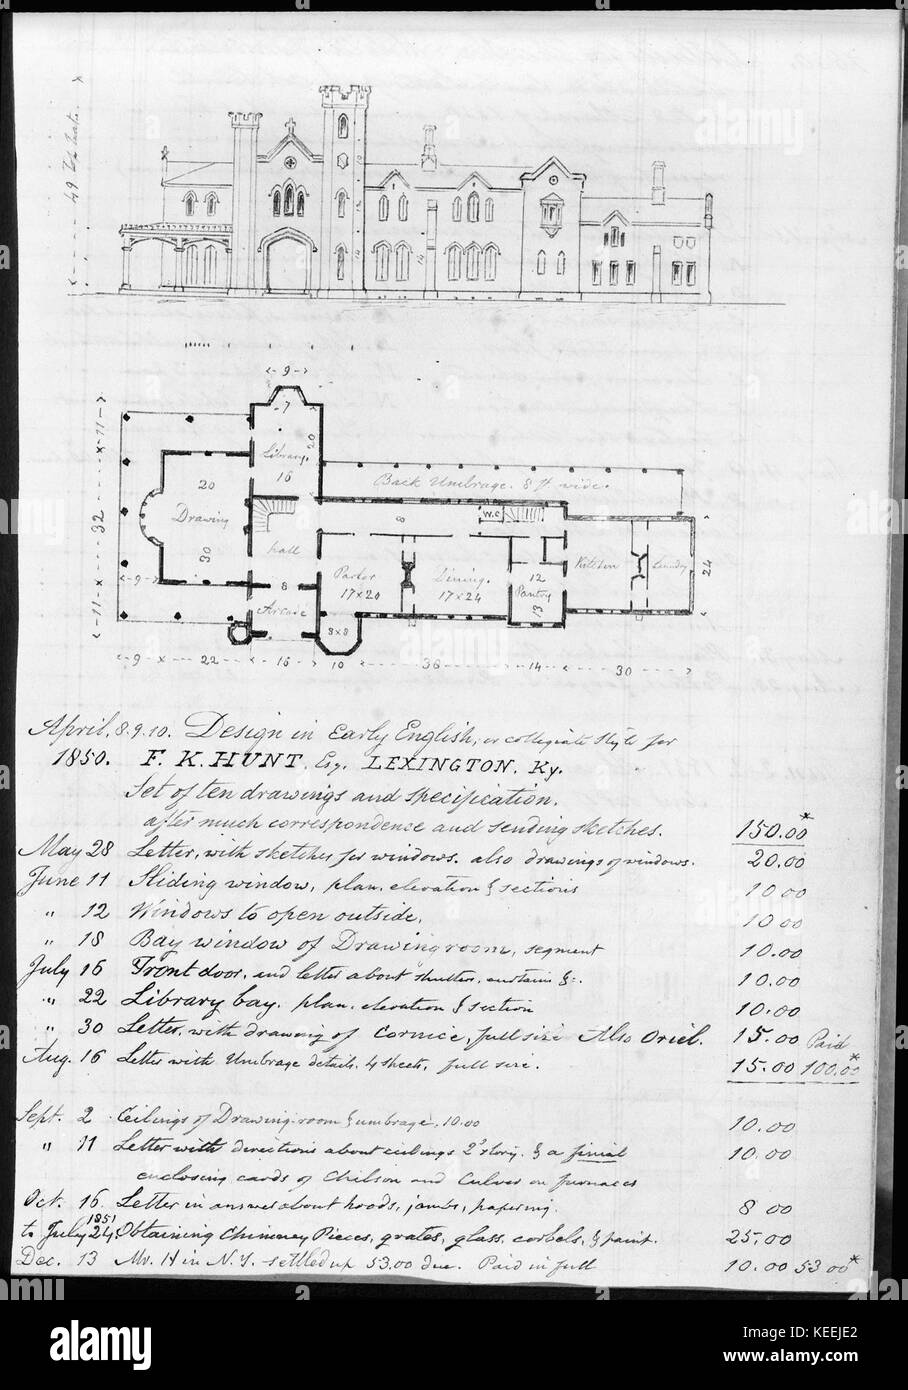 49 ft.
9
7
20
Library.
16
11
20
Drawing
30
32
11
9
hall
8
Arcade
Back Umbrage. 8 ft wide.
8
W.C
Parlor
17x20
Dining.
17x24
12
Pantry
13
Kitchen
Laundry
24
8x8
9 x 22 15 10 36 14 30
April. 8.9.10. Design in Early English, or collegiate style for
1850. F. K. HUNT. Esq. LEXINGTON. Ky.
Set of ten drawings and specification.
after much correspondence and sending sketches. 150.00*
May 28 Letter, with sketches for windows. also drawings of windows. 20.00
June 11 Sliding window, plan, elevation & sections 10.00
" 12 Windows to open outside, 10.00
" 18 Bay window of Drawing room, segment 10.00
July 16 Front door, and letter about shutters, curtains &c. 10.00
" 22 Library bay. plan, elevation & section 10.00
" 30 Letter, with drawing of Cornice, full size Also Oriel. 15.00 Paid
Aug. 16 Letter with Umbrage details. 4 sheets, full size. 15.00 100.00*
Sept. 2 Ceilings of Drawing-room & umbrage, 10.00 10.00
" 11 Letter with directions about ceilings 2d story. & a finial 10.00
enclosing cards of Chilson and Culver on furnaces
Oct. 16. Letter in answer about hoods, jambs, papering. 8 00
to July 1851 24, Obtaining Chimney Pieces, grates, glass, corbels, & paint. 25.00
Dec. 13 Mr. H in N.Y. settled up 53.00 due. Paid in full 10.00 53 00*
alamy
Image ID: KEEJE2
www.alamy.com